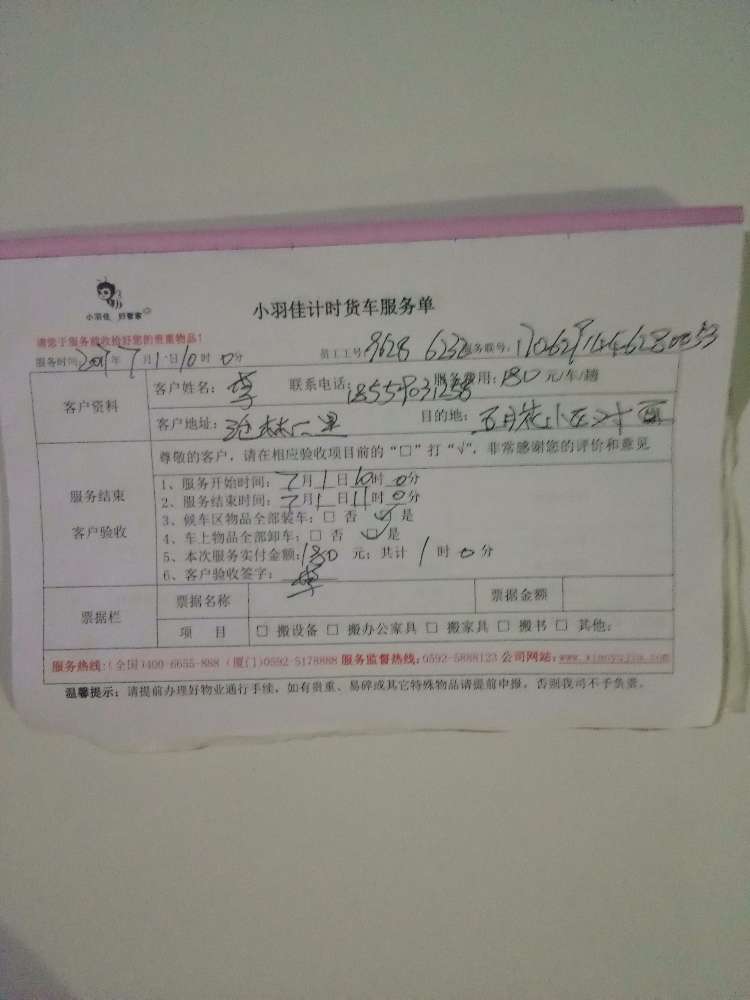 小羽佳 好管家
小羽佳计时货车服务单
请您于服务前收拾好您的贵重物品！
服务时间 年7月1日10时0分 员工工号 9628 6232 服务联号：
客户资料 客户姓名：李 联系电话： 服务费用：180元/车/趟
客户地址： 目的地：五月花小区
服务结束 客户验收
尊敬的客户，请在相应验收项目前的“□”打“√”，非常感谢您的评价和意见
1、服务开始时间：7月1日10时0分
2、服务结束时间：7月1日11时0分
3、候车区物品全部装车：□ 否 ☑ 是
4、车上物品全部卸车：□ 否 ☑ 是
5、本次服务实付金额：180元；共计1时0分
6、客户验收签字：李
票据栏 票据名称 票据金额
项 目 □ 搬设备 □ 搬办公家具 □ 搬家具 □ 搬书 □ 其他：
服务热线：(全国)400-6655-888 (厦门)0592-5178888 服务监督热线：0592-5888123 公司网站：www.xiaoyujia.com
温馨提示：请提前办理好物业通行手续，如有贵重、易碎或其它特殊物品请提前申报，否则我司不予负责。